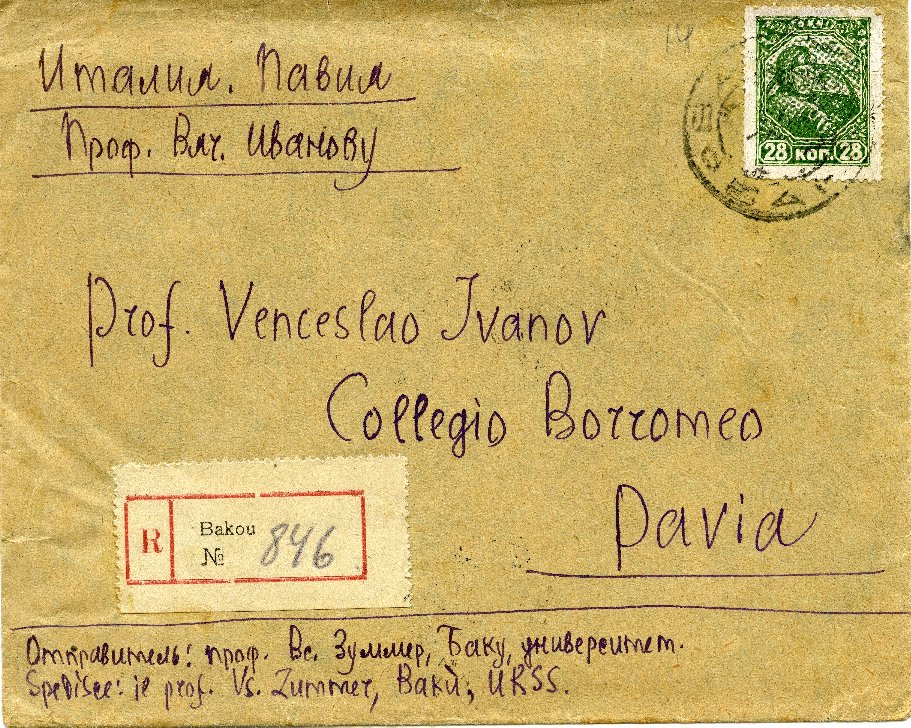 14
Италия. Павия
Проф. Вяч. Иванову
28 коп. 28
Prof. Venceslao Ivanov
Collegio Borromeo
Pavia
R
Bakou
№ 846
Отправитель: проф. Вс. Зуммер, Баку, университет.
Spedisce: il prof. Vs. Zummer, Bakù, URSS.